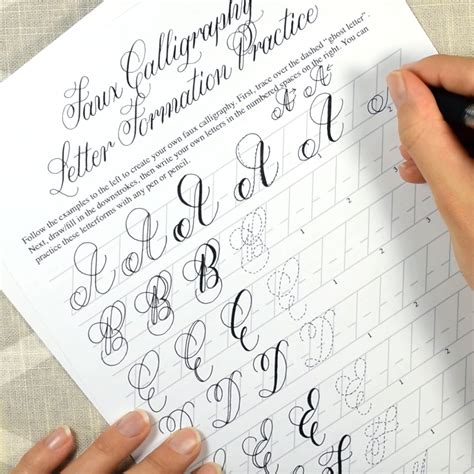 Faux Calligraphy
Letter Formation Practice
Follow the examples to the left to create your own faux calligraphy. First, trace over the dashed "ghost letter".
Next, draw/fill in the downstrokes, then write your own letters in the numbered spaces on the right. You can
practice these letterforms with any pen or pencil.
A A
A A A A A
B B B B
C C C C
D D D D
E E
F